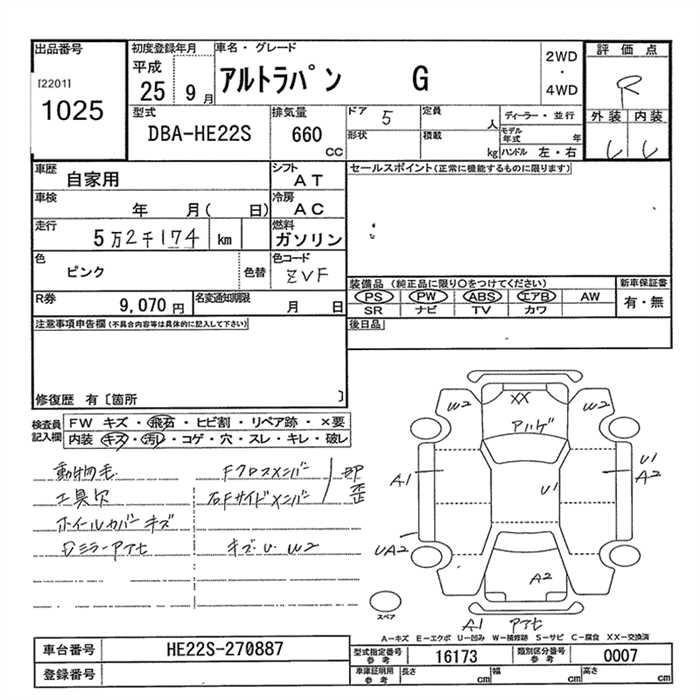 出品番号
[2201]
1025
初度登録年月
平成
25 9月
車名・グレード
アルトラパン G
2WD
・
4WD
評価点
R
外装 内装
型式
DBA-HE22S
排気量
660
CC
ドア 5
形状
定員 人
積載 kg
ディーラー・並行
モデル年式 年
ハンドル 左・右
車歴
自家用
シフト
AT
車検
年 月( 日)
冷房
AC
走行
5万2千174 km
燃料
ガソリン
色
ピンク
色替
色コード
ZVF
R券
9,070 円
名変通知期限
月 日
セールスポイント(正常に機能するものに限ります)
装備品 (純正品に限り○をつけてください)
PS PW ABS エアB AW
SR ナビ TV カワ
新車保証書
有・無
後日品
注意事項申告欄(不具合内容等は具体的に記入して下さい)
修復歴 有〔箇所 〕
検査員記入欄
FW キズ・飛石・ヒビ割・リペア跡・×要
内装 キズ・汚レ・コゲ・穴・スレ・キレ・破レ
動物毛
工具欠
ホイルカバーキズ
Dミラーアセ
Fクロスメンバー
右Fサイドメンバー
部歪
キズ・U・W2
W2
XX
W2
アハゲ
A1
U1
U1
A2
UA2
A2
A1 アアセ
スペア
A-キズ E-エクボ U-凹み W-補修跡 S-サビ C-腐食 XX-交換済
車台番号
HE22S-270887
登録番号
型式指定番号 参考
16173
類別区分番号 参考
0007
車庫証明用 参考
長さ cm
幅 cm
高さ cm